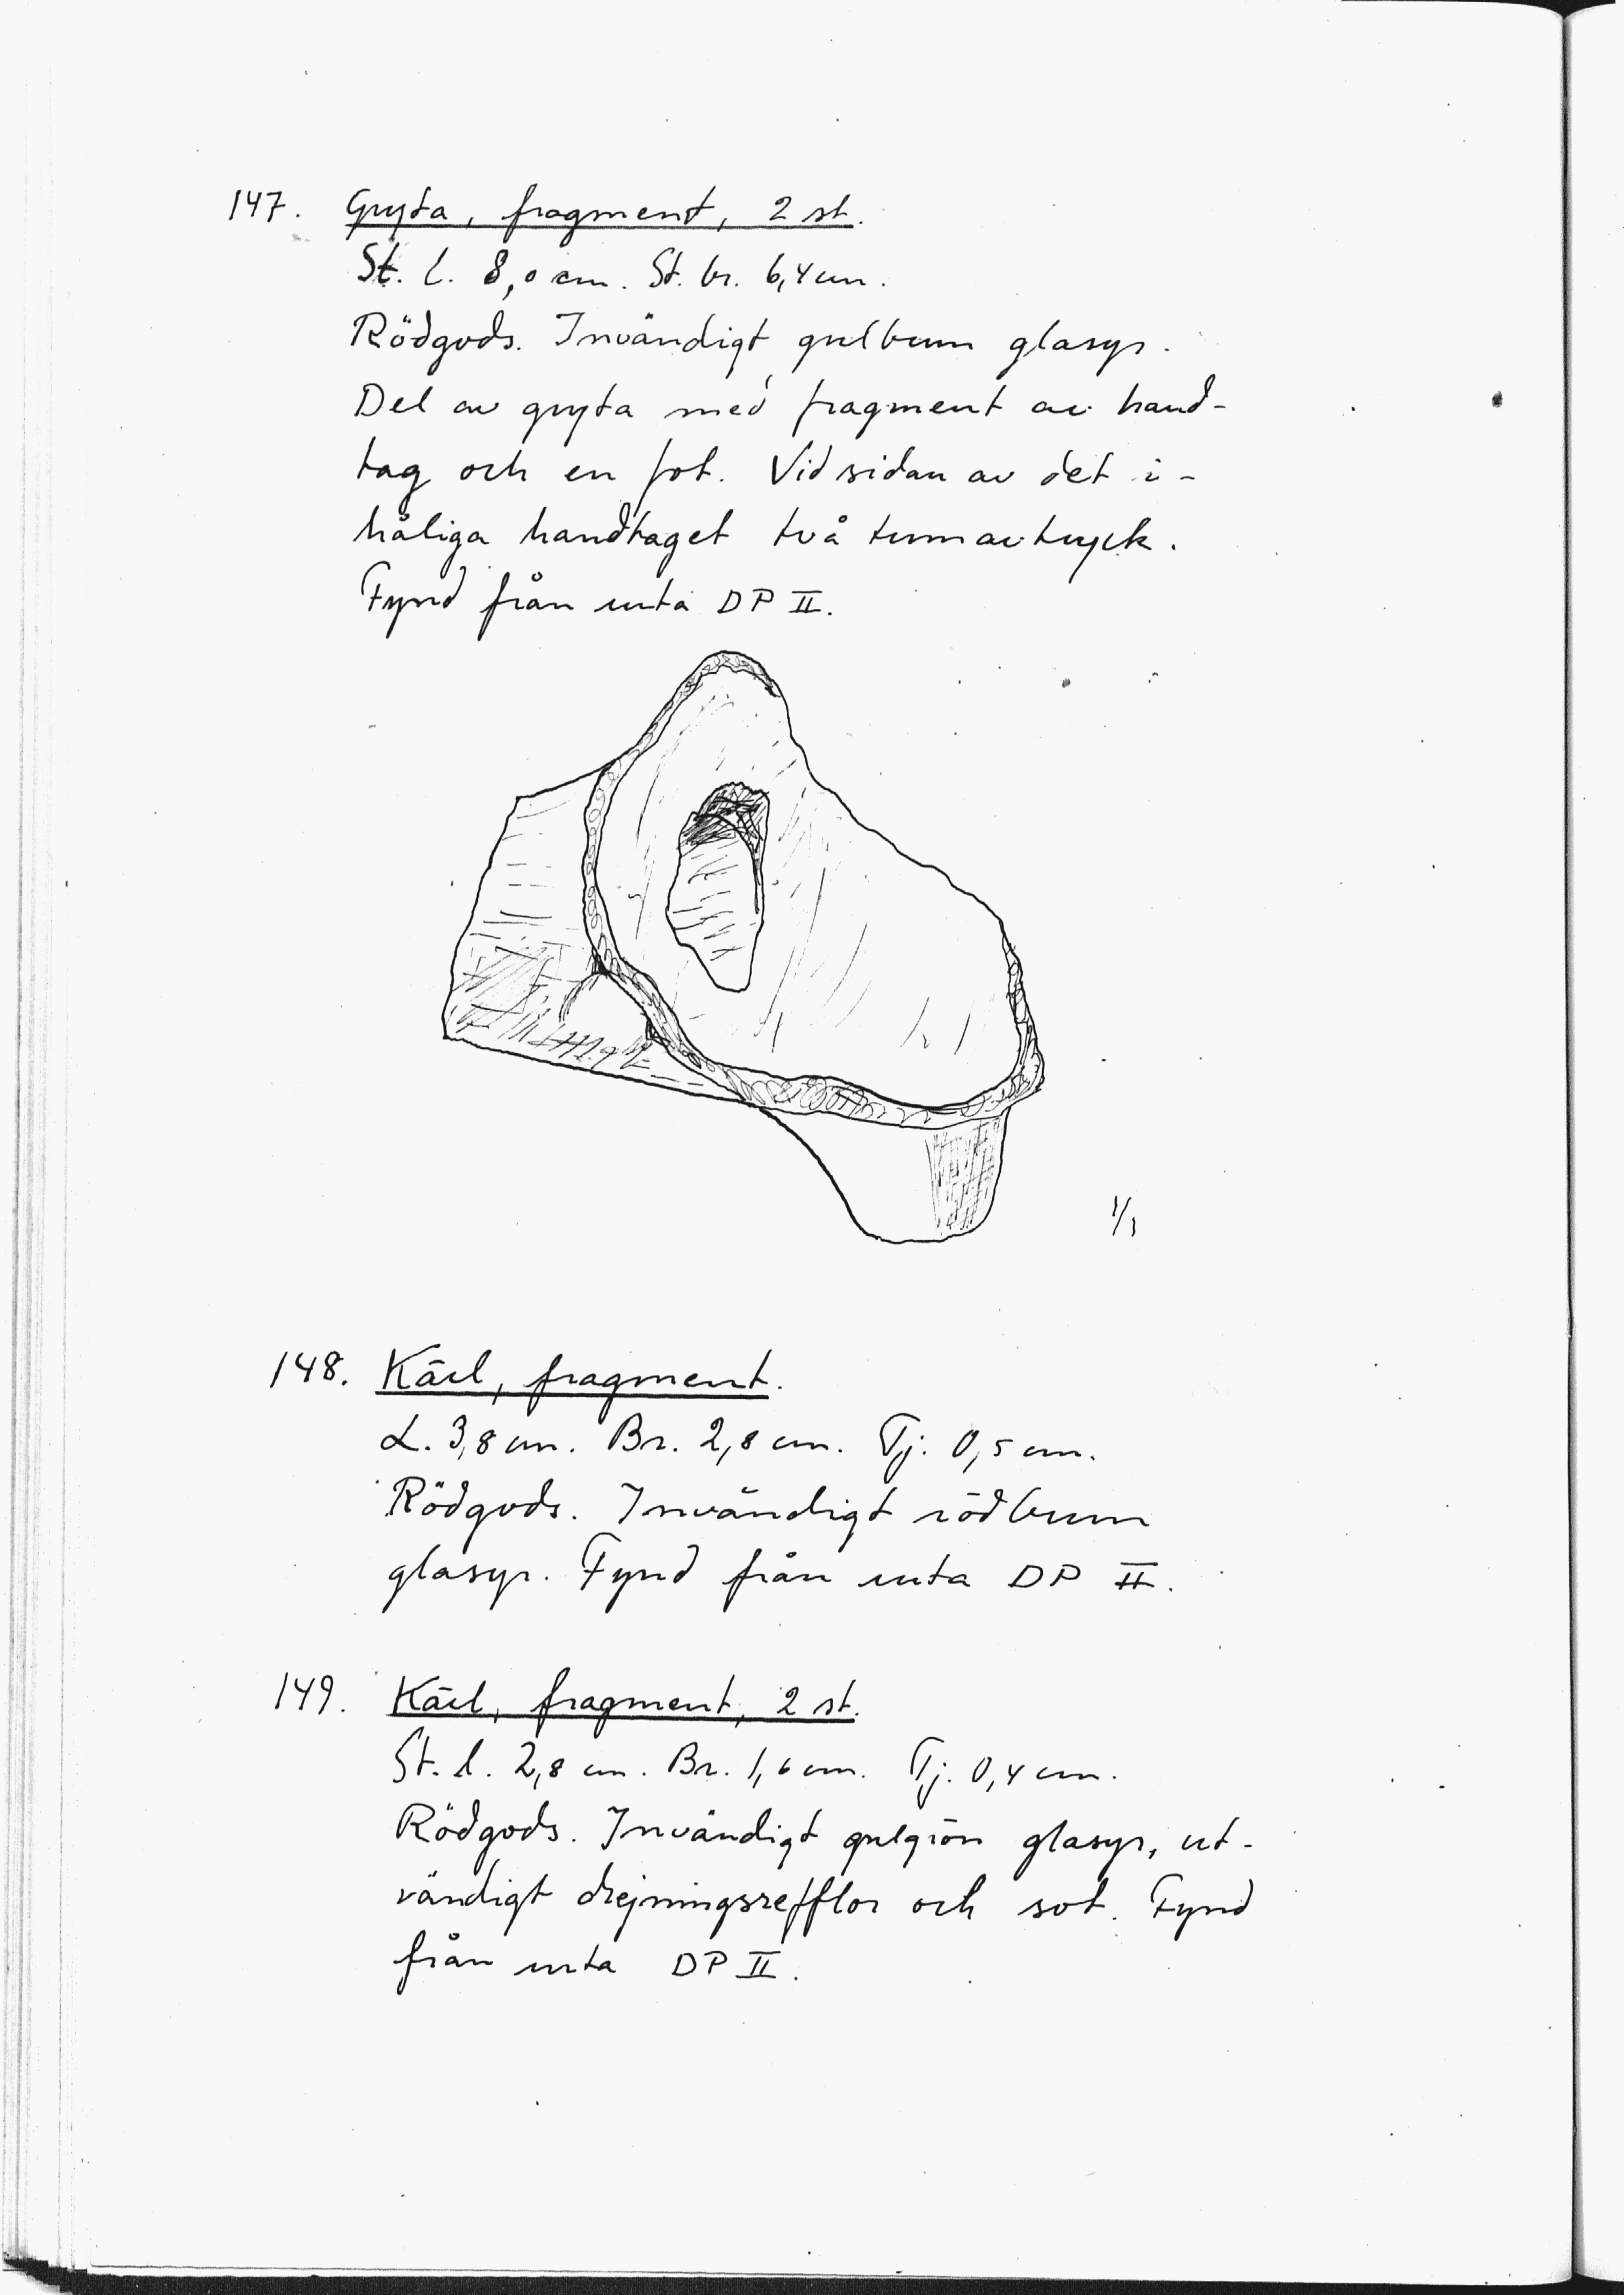 147. Gryta, fragment, 2 st.
St. l. 8,0 cm. St. br. 6,4 cm.
Rödgods. Invändigt gulbrun glasyr.
Del av gryta med fragment av hand-
tag och en fot. Vid sidan av det i-
håliga handtaget två tumavtryck.
Fynd från ruta DP II.
1/1
148. Kärl, fragment.
L. 3,8 cm. Br. 2,8 cm. Tj. 0,5 cm.
Rödgods. Invändigt rödbrun
glasyr. Fynd från ruta DP II.
149. Kärl, fragment, 2 st.
St. l. 2,8 cm. Br. 1,6 cm. Tj. 0,4 cm.
Rödgods. Invändigt gulgrön glasyr, ut-
vändigt drejningsrefflor och sot. Fynd
från ruta DP II.